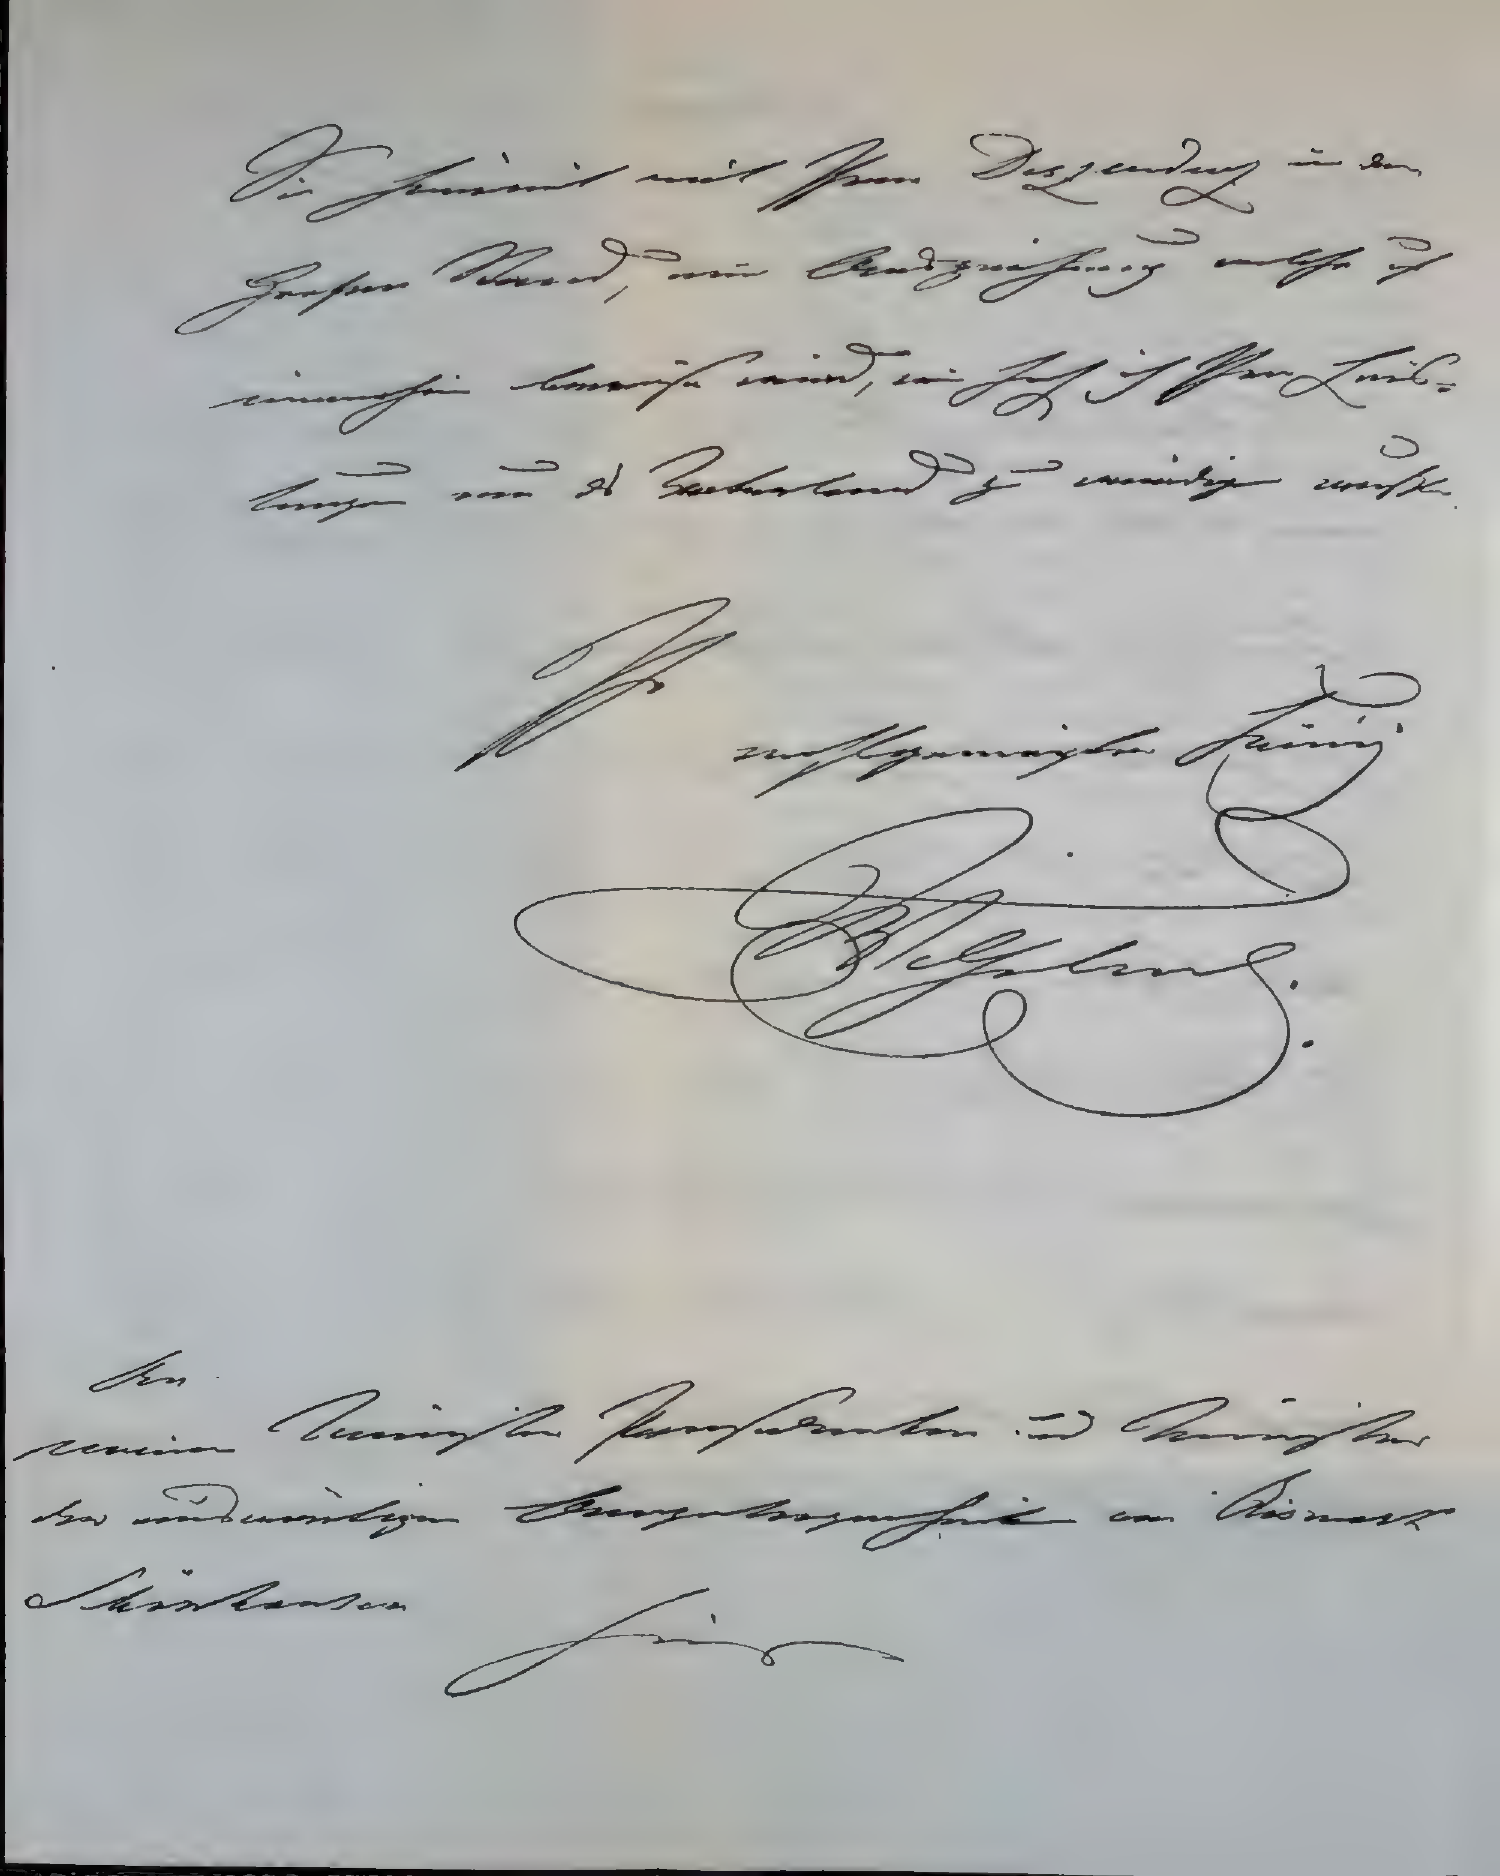 Sie hiermit mit Ihrer Deszendenz in den
Grafen Stand, eine Auszeichnung welche es
immerhin beweisen wird, wie hoch ich Ihre Leis-
tungen um das Vaterland zu würdigen wußte.
Ihr
wohlgeneigter König
Wilhelm.
An
meinen Minister Praesidenten und Minister
der auswärtigen Angelegenheiten von Bismark
Schönhausen
hier